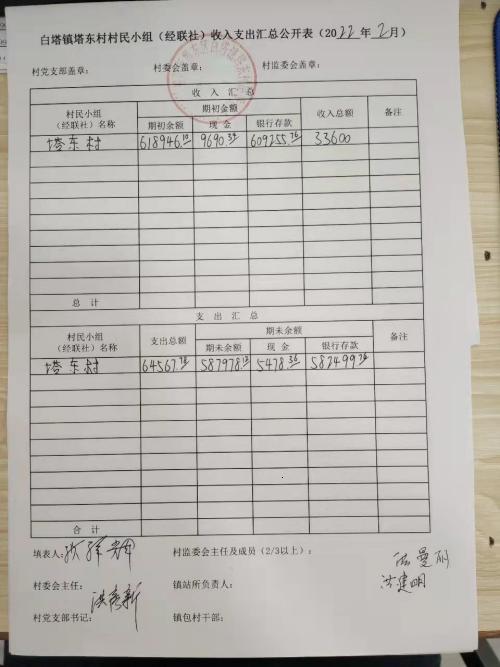 白塔镇塔东村村民小组（经联社）收入支出汇总公开表（2022年2月）
村党支部盖章： 村委会盖章： 村监委会盖章：
收 入 汇 总
村民小组（经联社）名称 期初金额 收入总额 备注
期初余额 现 金 银行存款
塔东村 618946.10 9690.34 609255.76 33600
总 计
支 出 汇 总
村民小组（经联社）名称 支出总额 期末余额 备注
期未余额 现 金 银行存款
塔东村 64567.98 587978.12 5478.36 582499.76
合 计
填表人： 村监委会主任及成员（2/3以上）：
村委会主任： 镇站所负责人： 洪建明
村党支部书记： 镇包村干部：